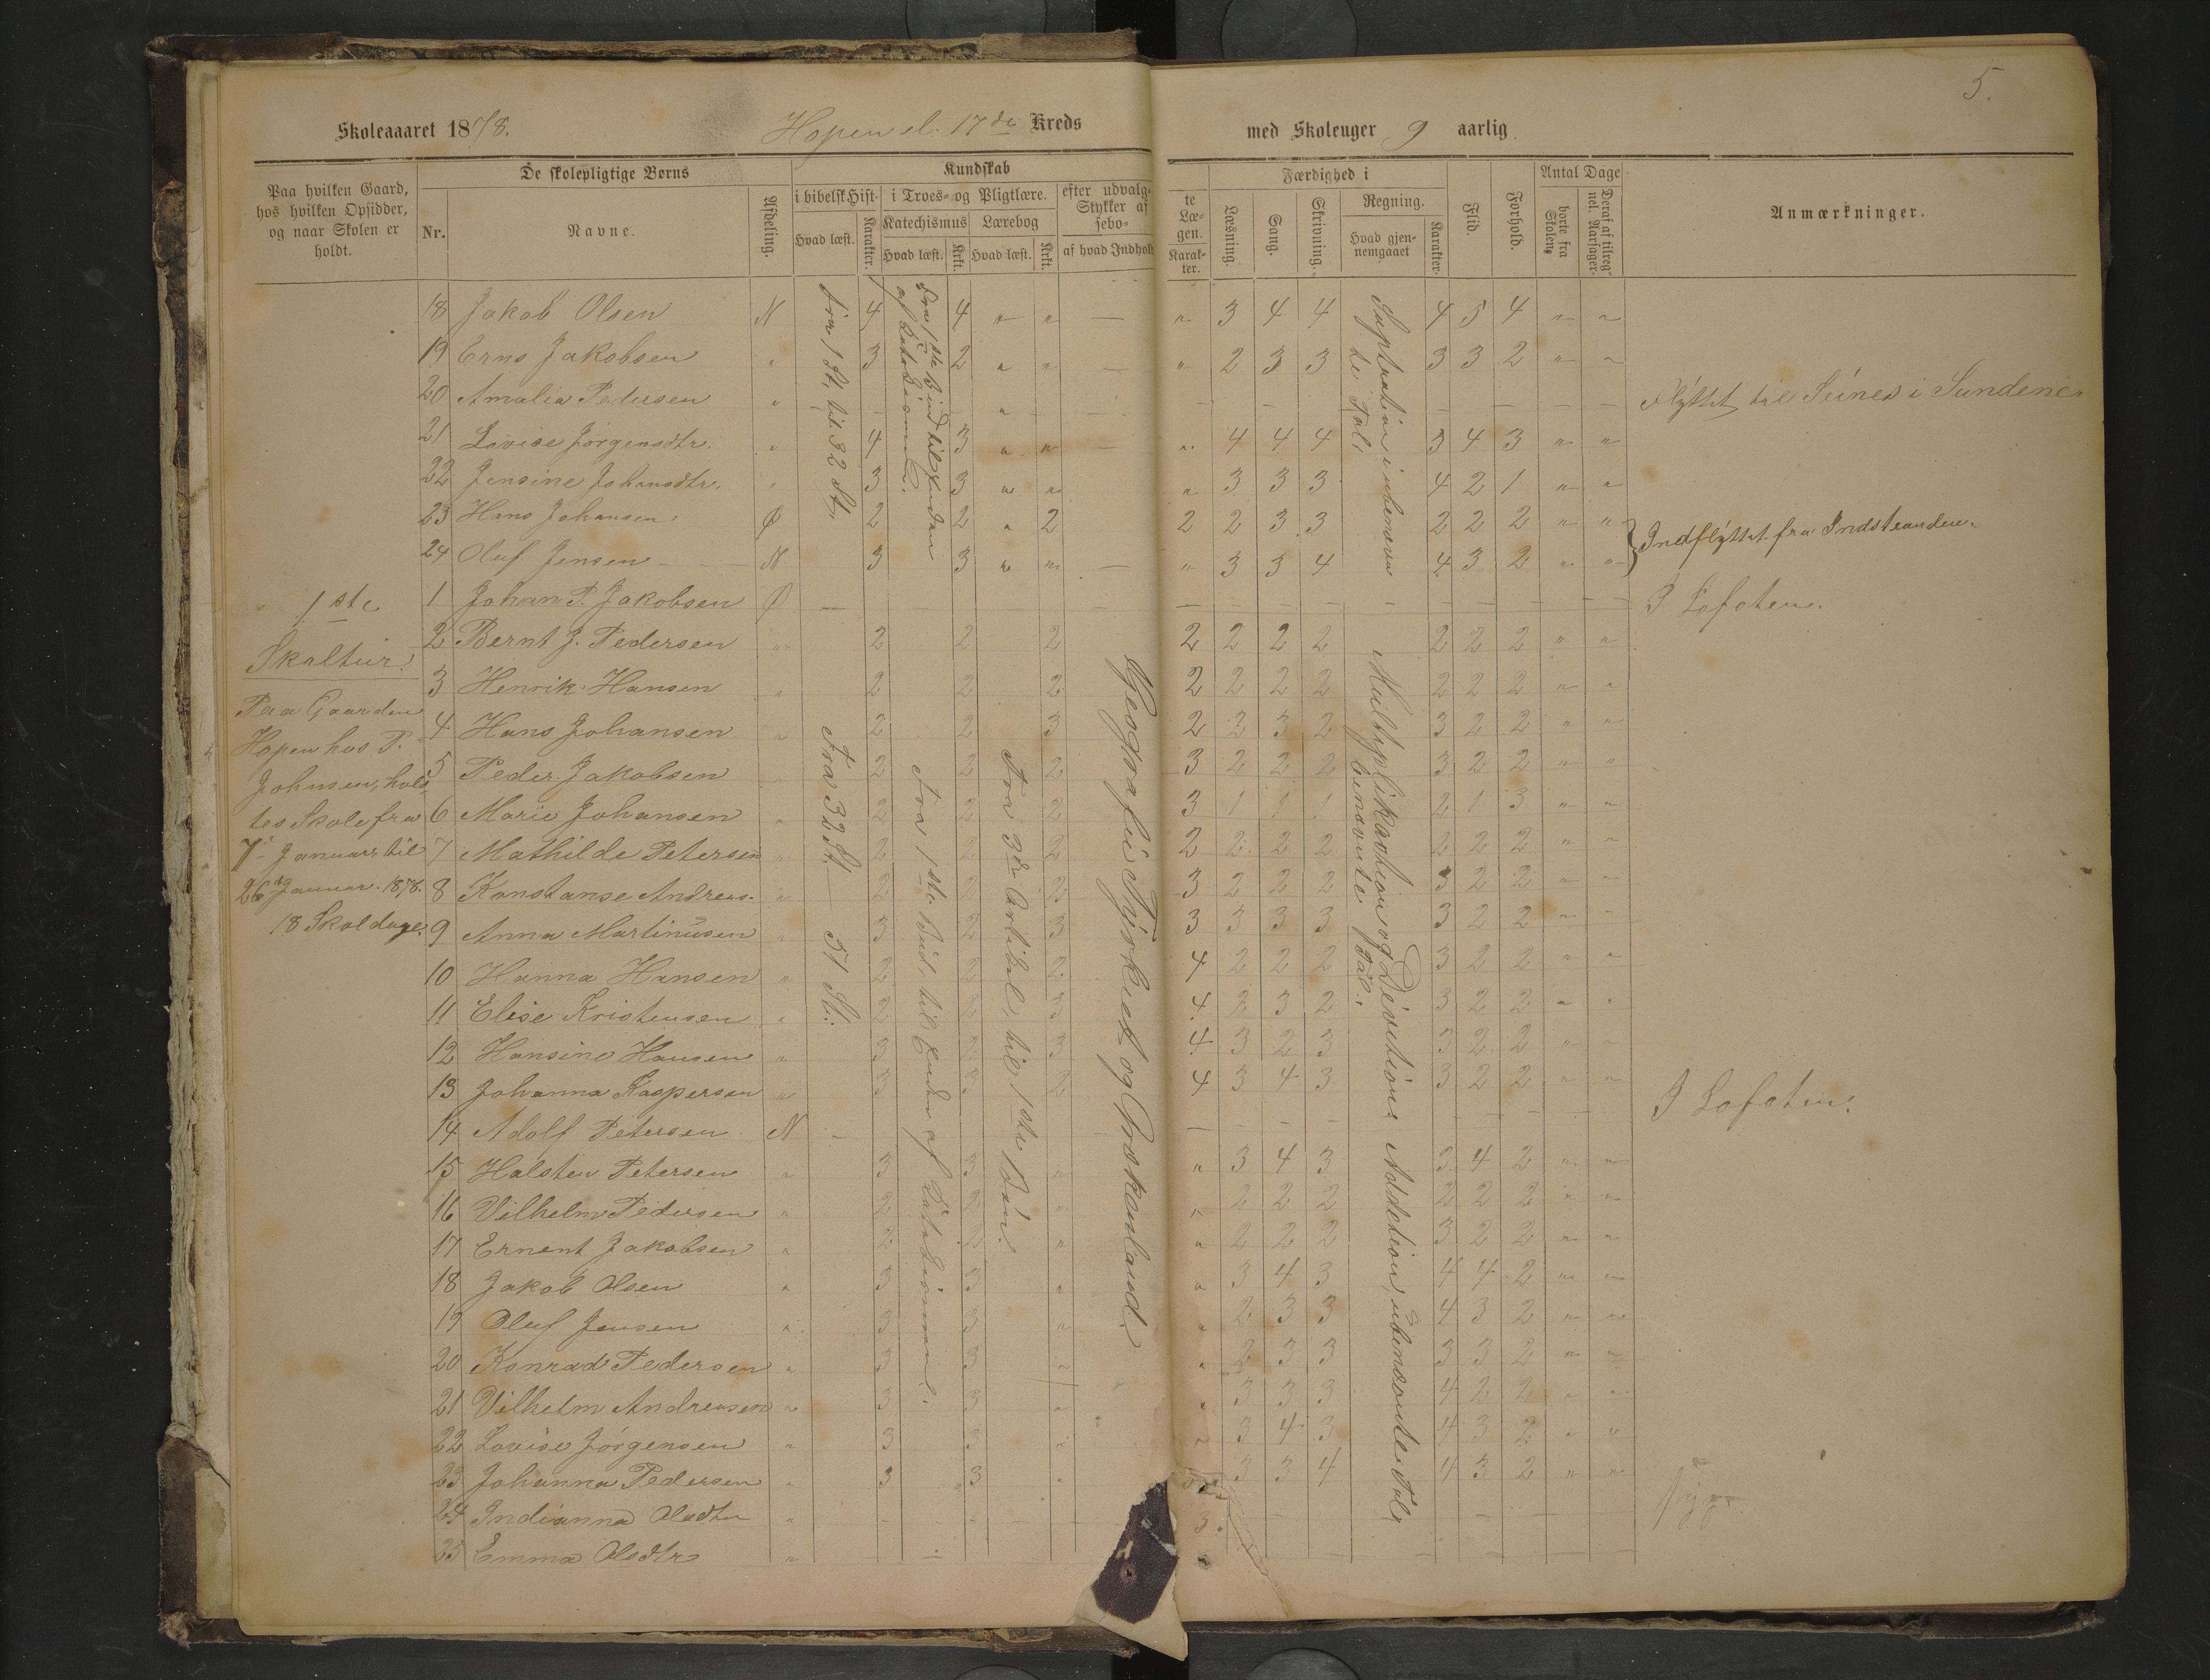 5.
Skoleaaaret 1878. Hopen el. 17de Kreds med Skoleuger 9 aarlig.
Paa hvilken Gaard, hos hvilken Opsidder, og naar Skolen er holdt.
De skolepligtige Børns
Nr. Navne. Afdeling.
Kundskab
i bibelsk Hist. i Troes- og Pligtlære. efter udvalg-te Stykker af Læ-sebo-gen.
Hvad læst. Karakter. Katechismus Lærebog
Hvad læst. Krkt. Hvad læst. Krkt. af hvad Indhold Karak-ter.
Færdighed i
Læsning. Sang. Skrivning. Regning.
Hvad gjen-nemgaaet Karakter.
Flid. Forhold.
Antal Dage
borte fra Skolen, Deraf af tilreg-nel. Aarsager.
Anmærkninger.
18 Jakob Olsen N 4 4 " " — " 3 4 4 4 5 4 " "
19 Erns Jakobsen " 3 2 " " — " 2 3 3 3 3 2 " "
20 Amalia Pedersen " Flyttet til Seines i Sundene
21 Lovise Jørgensdtr. " 4 3 " " — " 4 4 4 3 4 3 " "
22 Jensine Johansdtr. " 3 3 " " " 3 3 3 4 2 1 " "
23 Hans Johansen Ø 2 2 " 2 2 2 3 3 2 2 2 " "
24 Oluf Jensen N 3 3 " " — " 3 3 4 4 3 2 " "
Indflyttet fra Indstranden.
Fra 1 St. til 32 St.
Fra 1ste Bud til Enden af Katekismen.
i ubenævn te Tal
1ste Skoltur.
Paa Gaarden
Hopen hos P.
Johnsen, hold
tes Skole fra
7 Januar til
26 Januar 1878.
18 Skoldage.
1 Johan P. Jakobsen Ø — I Lofoten.
2 Bernt J. Pedersen " 2 2 2 2 2 2 2 2 2 2 " "
3 Henrik Hansen " 2 2 2 2 2 2 2 2 2 2 " "
4 Hans Johansen " 2 2 3 2 2 3 2 3 2 2 " "
5 Peder Jakobsen " 2 2 2 3 2 2 2 3 2 2 " "
6 Marie Johansen " 2 2 2 3 1 1 1 2 1 3 " "
7 Mathilde Petersen " 2 2 2 2 2 2 2 2 2 2 " "
8 Konstanse Andreas. " 2 2 2 3 2 2 2 3 2 2 " "
9 Anna Martinusen " 3 2 3 3 3 3 3 3 2 2 " "
10 Hanna Hansen " 2 2 2 4 2 2 2 3 2 2 " "
11 Elise Kristensen " 2 2 3 4 2 3 2 3 2 2 " "
12 Hansine Hansen " 3 2 3 4 3 2 3 3 2 2 " "
13 Johanna Kaspersen " 3 3 2 4 3 4 3 3 2 2 " "
14 Adolf Petersen N — I Lofoten.
15 Halsten Petersen " 3 3 " " 3 4 3 3 4 2 " "
16 Vilhelm Pedersen " 2 2 " " 2 2 2 2 2 2 " "
17 Ernent Jakobsen " 2 2 " " 2 2 2 3 2 2 " "
18 Jakob Olsen " 3 3 " " 3 4 3 4 4 2 " "
19 Oluf Jensen " 3 3 " " 2 3 3 4 3 2 " "
20 Konrad Pedersen " 3 3 " " 2 3 3 3 3 2 " "
21 Vilhelm Andreasen " 3 3 " " 3 3 3 4 2 2 " "
22 Lovise Jørgensen " 3 3 " " 3 4 3 4 3 2 " "
23 Johanna Pedersen " 3 3 " 3 3 4 4 3 2 " "
24 Indianna Olsdtr "
25 Emma Olsdtr "
Fra 32 St. — 51 St.
Fra 1ste Bud til Enden af Katekismen.
Fra 3die Artikel til 1ste Bøn.
Geografie Tyrkiet og Grækenland.
Multiplikastion og Devistions benævnte Tal.
Addetion, ubenævnte Tal